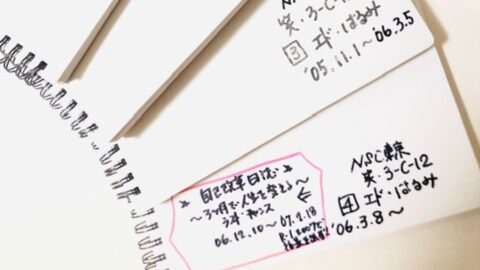 NSC
笑・3-C-12
3 エド・はるみ
'05.11.1～'06.3.5
NSC東京
笑・3-C-12
4 エド・はるみ
'06.3.8～
自己改革日誌
～3ヶ月で人生を変える～
ラストチャンス
06.12.10～07.1.18